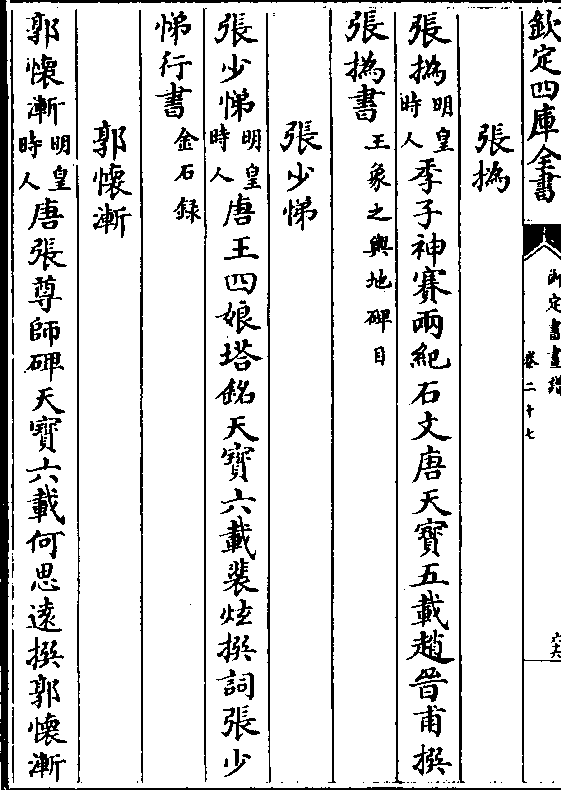 欽定四庫全書
御定書畫譜
卷二十七
張撝
張撝明皇時人季子神賽兩紀石文唐天寶五載趙晉甫撰
張撝書王象之輿地碑目
張少悌
張少悌明皇時人唐王四娘塔銘天寶六載裴炫撰詞張少
悌行書金石録
郭懷漸
郭懷漸明皇時人唐張尊師碑天寶六載何思遠撰郭懷漸